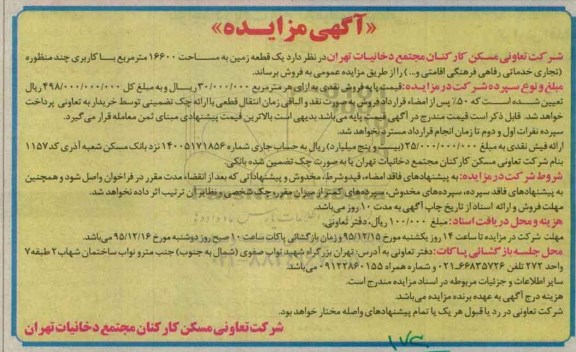 «آگهی مزایده»
شرکت تعاونی مسکن کارکنان مجتمع دخانیات تهران در نظر دارد یک قطعه زمین به مساحت ۱۶۶۰۰ مترمربع با کاربری چند منظوره
(تجاری خدماتی رفاهی فرهنگی اقامتی و..) را از طریق مزایده عمومی به فروش برساند.
مبلغ و نوع سپرده شرکت در مزایده: قیمت پایه فروش نقدی به ازای هر مترمربع ۳۰/۰۰۰/۰۰۰ ریال و به مبلغ کل ۴۹۸/۰۰۰/۰۰۰/۰۰۰ ریال
تعیین شده است که ۵۰٪ پس از امضاء قرارداد فروش به صورت نقد و الباقی زمان انتقال قطعی با ارائه چک تضمینی توسط خریدار به تعاونی پرداخت
خواهد شد. قابل ذکر است قیمت مندرج در آگهی قیمت پایه می‌باشد بدیهی است بالاترین قیمت پیشنهادی مبنای ثمن معامله قرار می‌گیرد.
سپرده نفرات اول و دوم تا زمان انجام قرارداد مسترد نخواهد شد.
ارائه فیش نقدی به مبلغ ۲۵/۰۰۰/۰۰۰/۰۰۰ (بیست و پنج میلیارد) ریال به حساب جاری شماره ۱۴۰۰۵۱۷۱۸۵۶ نزد بانک مسکن شعبه آذری کد ۱۱۵۷
بنام شرکت تعاونی مسکن کارکنان مجتمع دخانیات تهران یا به صورت چک تضمین شده بانکی.
شروط شرکت در مزایده: به پیشنهادهای فاقد امضاء، قید و شرط، مخدوش و پیشنهاداتی که بعد از انقضاء مدت مقرر در فراخوان واصل شود و همچنین
به پیشنهادهای فاقد سپرده، سپرده‌های مخدوش، سپرده‌های کمتر از میزان مقرر، چک شخصی و نظایر آن ترتیب اثر داده نخواهد شد.
مهلت فروش و ارائه اسناد از تاریخ چاپ آگهی به مدت ۱۰ روز می‌باشد.
هزینه و محل دریافت اسناد: مبلغ ۱۰۰/۰۰۰ ریال، دفتر تعاونی.
مهلت شرکت در مزایده تا ساعت ۱۴ روز یکشنبه مورخ ۹۵/۱۲/۱۵ و زمان بازگشائی پاکات ساعت ۱۰ صبح روز دوشنبه مورخ ۹۵/۱۲/۱۶ می‌باشد.
محل جلسه بازگشائی پاکات: دفتر تعاونی به آدرس: تهران بزرگراه شهید نواب صفوی (شمال به جنوب) جنب مترو نواب ساختمان شهاب ۲ طبقه ۷
واحد ۲۷۲ تلفن ۶۶۸۳۵۷۲۶-۰۲۱ و شماره همراه ۰۹۱۲۲۸۶۰۱۵۵ می‌باشد.
سایر اطلاعات و جزئیات مربوطه در اسناد مزایده مندرج است.
هزینه درج آگهی به عهده برنده مزایده می‌باشد.
شرکت تعاونی در رد یا قبول هر یک یا تمام پیشنهادهای واصله مختار خواهد بود.
شرکت تعاونی مسکن کارکنان مجتمع دخانیات تهران